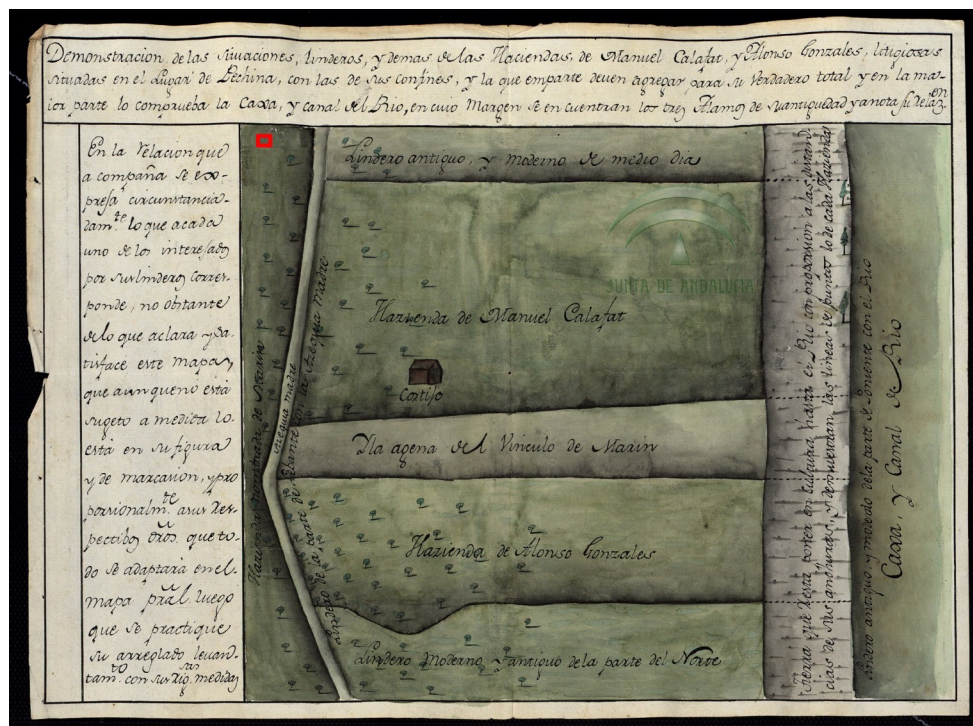 Demonstracion de las situaciones, linderos, y demas de las Haciendas, de Manuel Calafat, y Alonso Gonzales, litigiosas
situadas en el Lugar de Pechina, con las de sus confines, y la que emparte deven agregar para su verdadero total y en la ma-
ior parte lo comprueba la Caxa, y canal del Rio, en cuio Margen se en cuentran los tres Alamos de su antiguedad y anota su Relaz.on
En la Relacion que
a compaña se ex-
presa circunstancia-
dam.te lo que acada
uno de los interesados
por sus linderos corres-
ponde, no obstante
de lo que aclara y sa-
tisface este mapa,
que aun queno está
sugeto a medida lo
está en su figura
y de marcacion, y pro
porsionalm.te a sus Res-
pectibos que to-
do se adaptará en el
mapa pral. luego
que se practique
su arreglado levan-
tam.to con sus medidas
Lindero antiguo, y moderno de medio dia
JUNTA DE ANDALUCIA
Hazienda de Manuel Calafat
Cortijo
Yla agena del Vinculo de Marin
Hazienda de Alonso Gonzales
Lindero Moderno y antiguo dela parte del Norte
Hazienda de Marin
Azequia madre
Lindero de la parte de lebante con la Azequia madre
Tierra que Resta hasta el Rio con proporsion a las
de sus y demuestran las lineas de puntos lo de cada Hazienda
Lindero antiguo y moderno dela parte de Poniente con el Rio
Caxa, y Canal de Rio